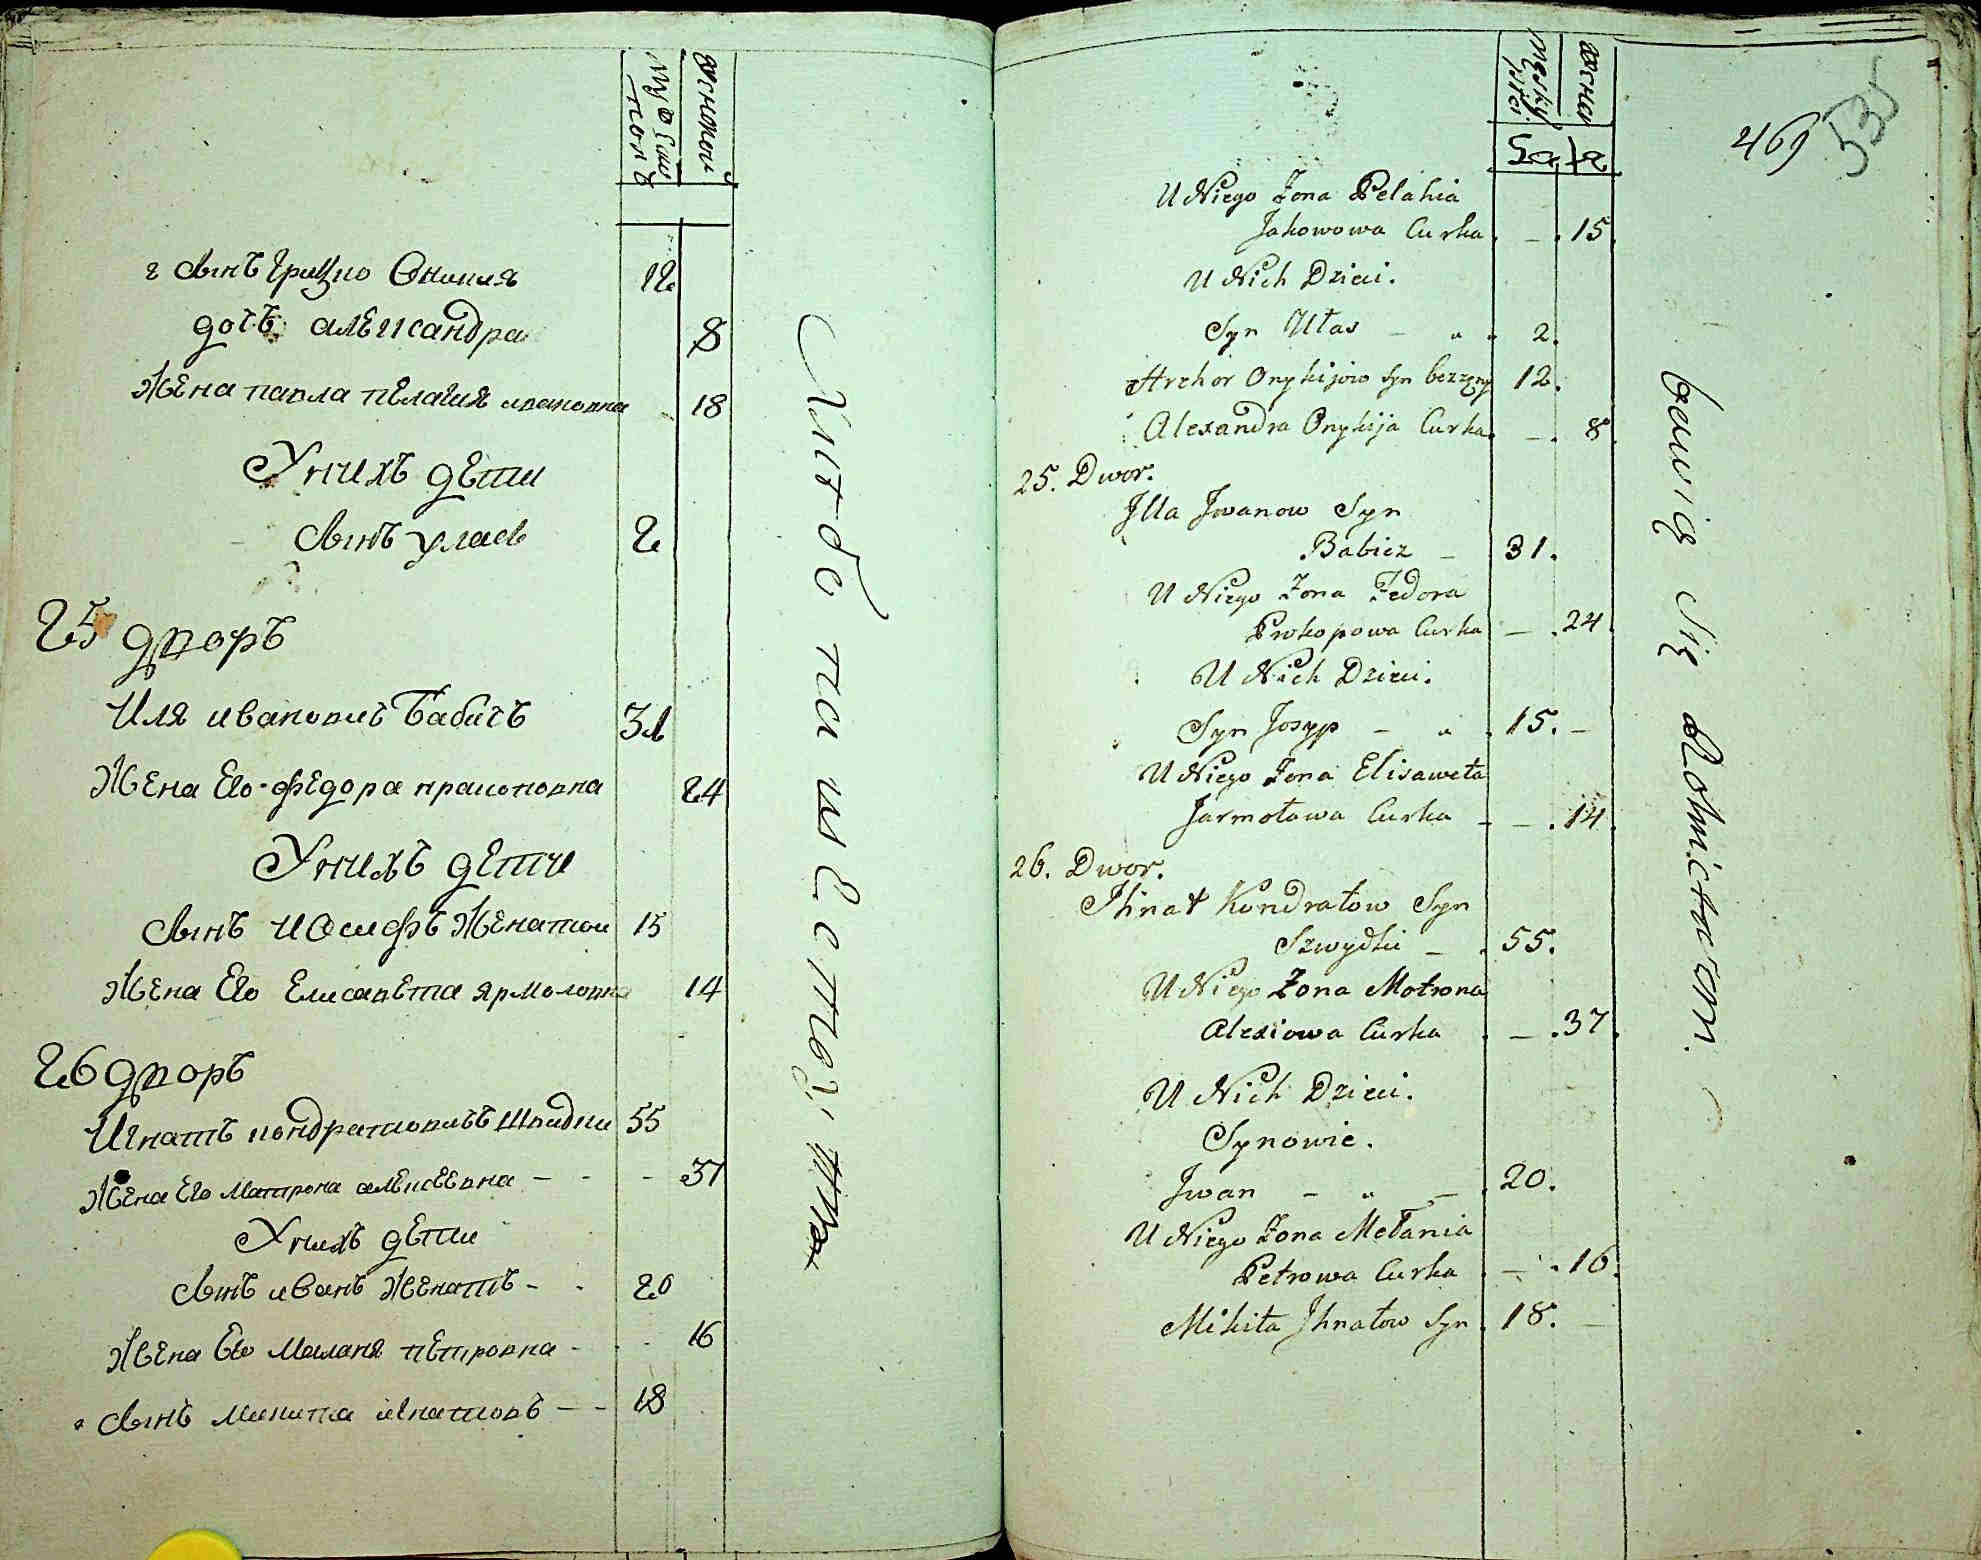 Мужеска полъ
Женской
2 сынъ Грицко Оникия 12
дочь александра 8
Жена павла пелагия ивановна 18
У нихъ дети
сынъ улас 2
25 дворъ
Иля ивановичъ Бабичъ 31
Жена Его федора пракоповна 24
У нихъ дети
сынъ иосифъ Женатои 15
Жена Его Елисавета ярмоловна 14
26 дворъ
Игнатъ кондратовичъ Швидки 55
Жена Его Матрона алексеевна - - - 37
У нихъ дети
сынъ иванъ Женатъ - - 20
Жена Его Маланя петровна - - - 16
сынъ микита игнатовъ - - 18
на
Męsky płci.
Żeńska
Lata
469
535
U Niego Żona Pelahia
Jakowowa Curka. - . 15
U Nich Dzieci.
Syn Ułas - " . 2.
Hrehor Onykijow Syn bezżęny 12.
Alexandra Onykija Curka. - . 8
25. Dwor.
Jlla Jwanow Syn
Babicz - 31.
U Niego Żona Fedora
Prokopowa Curka - . 24
U Nich Dzieci.
Syn Josyp - " . 15. -
U Niego Żona Elisaweta
Jarmołowa Curka - - . 14
26. Dwor.
Jhnat Kondratow Syn
Szwydki - . 55.
U Niego Żona Motrona
Alexiowa Curka . - . 37
U Nich Dzieci.
Synowie.
Jwan - " - . 20.
U Niego Żona Mełania
Petrowa Curka . - . 16.
Mikita Jhnatow Syn . 18. -
bawią się Rolnictwem.